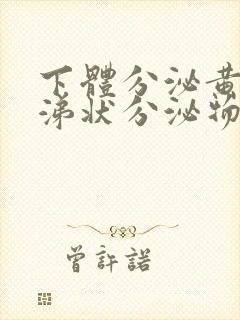 下體分泌黃
涕狀分泌物
曾許諾